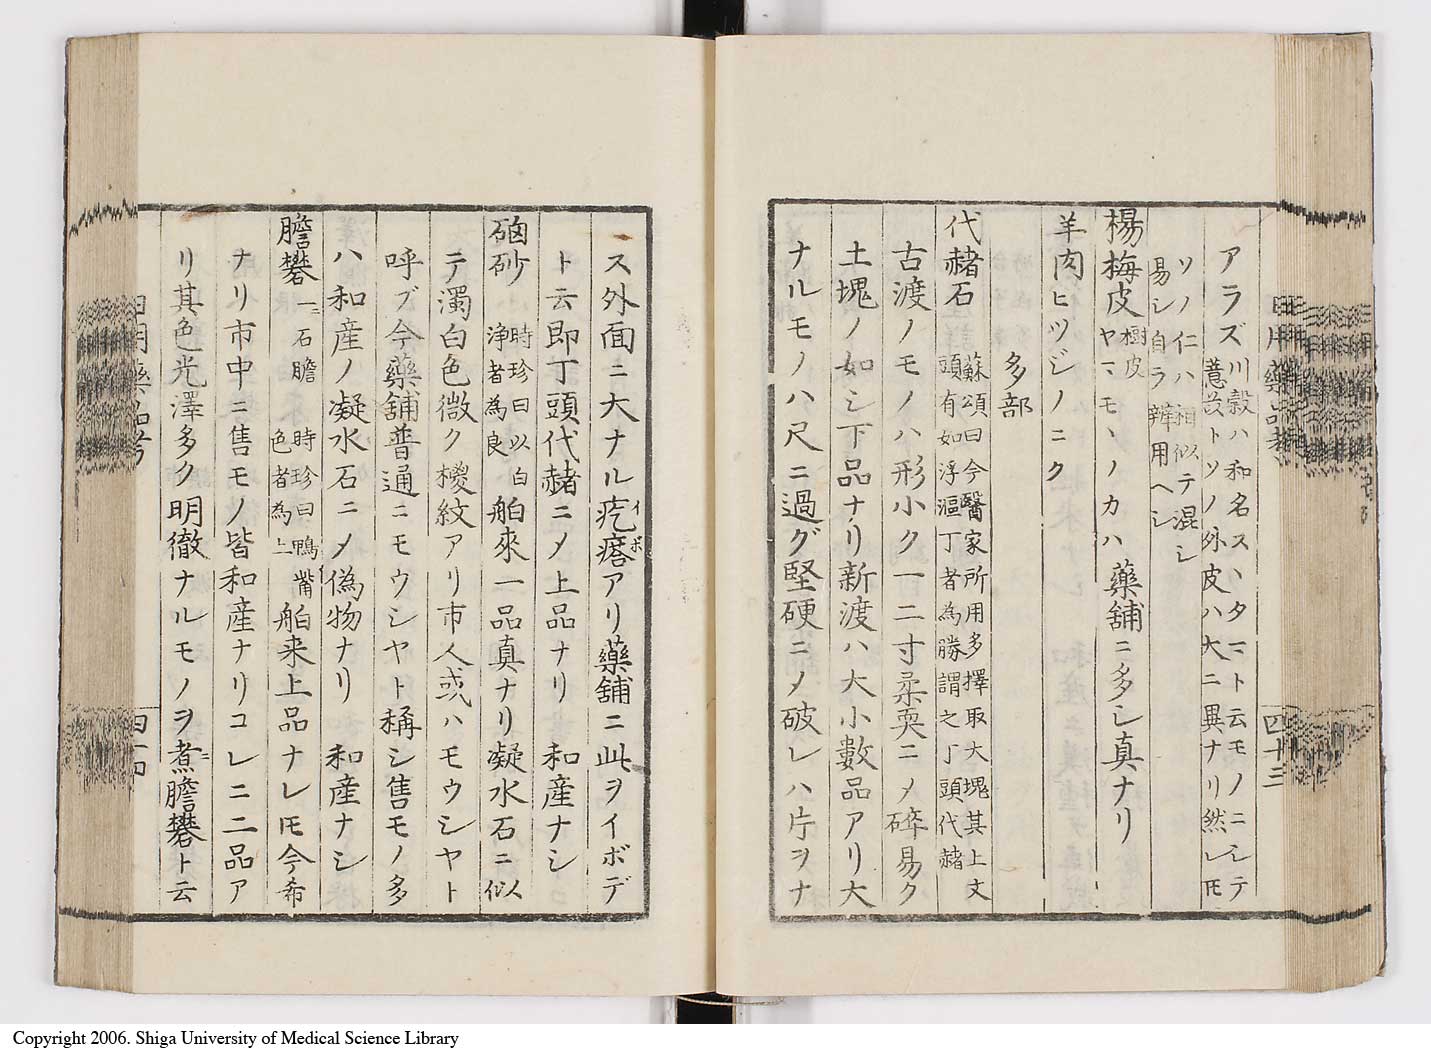 アラズ川穀ハ和名スヽタマト云モノニシテ
薏苡トソノ外皮ハ大ニ異ナリ然レ𪜈
ソノ仁ハ相似テ混シ
易シ自ラ辨用ヘシ
楊梅皮 樹皮 ヤマモヽノカハ 藥舖ニ多シ真ナリ
羊肉ヒツジノニク
多部
代赭石 蘇頌曰今醫家所用多擇取大塊其上文
頭有如浮漚丁者為勝謂之丁頭代赭
古渡ノモノハ形小ク一二寸柔耎ニ〆碎易ク
土塊ノ如シ下品ナリ新渡ハ大小數品アリ大
ナルモノハ尺ニ過グ堅硬ニ〆破レハ片ヲナ
日用藥品考
四十三
ス外面ニ大ナル疙瘩イボアリ藥舖ニ此ヲイボデ
ト云即丁頭代赭ニ〆上品ナリ 和産ナシ
硇砂 時珍曰以白
浄者為良 舶來一品真ナリ凝水石ニ似
テ濁白色微ク㮨紋アリ市人或ハモウシヤト
呼ブ今藥舖普通ニモウシヤト稱シ售モノ多
ハ和産ノ凝水石ニ〆偽物ナリ 和産ナシ
膽礬 一ニ石膽 時珍曰鴨觜
色者為上 舶来上品ナレ𪜈今希
ナリ市中ニ售モノ皆和産ナリコレニ二品ア
リ其色光澤多ク明徹ナルモノヲ煮膽礬ト云
Copyright 2006. Shiga University of Medical Science Library